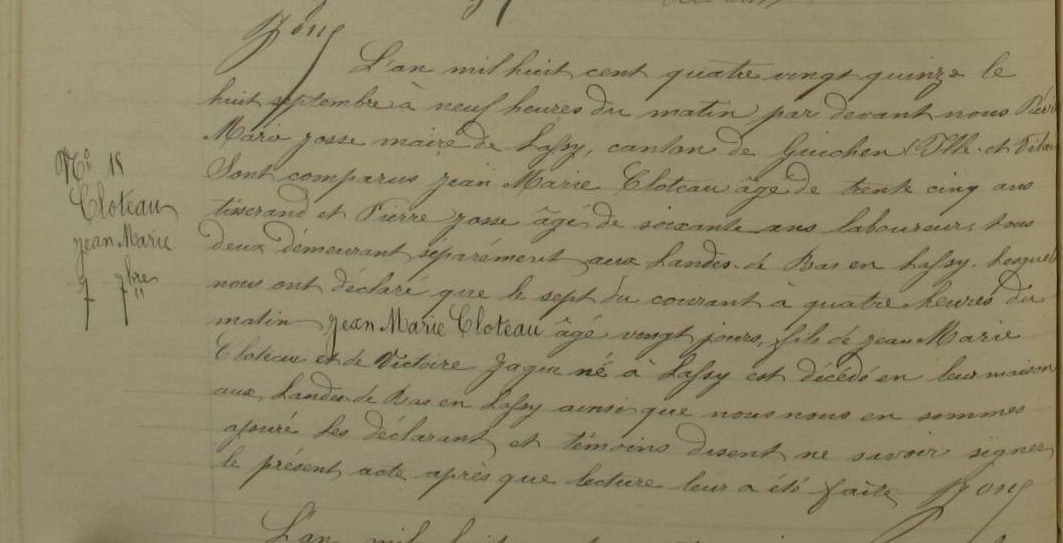 L'an mil huit cent quatre vingt quinze le
huit septembre à neuf heures du matin par devant nous
Marie Josse maire de Lassy, canton de Guichen (Ille-et-Vilai
Sont comparus Jean Marie Cloteau âgé de trente cinq ans
tisserand et Pierre Josse âgé de soixante ans laboureur, tous
deux demeurant séparément aux Landes de Bas en Lassy. Lesquels
nous ont déclaré que le sept du courant à quatre heures du
matin Jean Marie Cloteau âgé vingt jours, fils de Jean Marie
Cloteau et de Victoire Jague né à Lassy est décédé en leur maison
aux Landes de Bas en Lassy ainsi que nous nous en sommes
assuré Les déclarant et témoins disent ne savoir signer
le présent acte après que lecture leur a été faite
No 15
Cloteau
Jean Marie
7 7bre
L'an mil huit